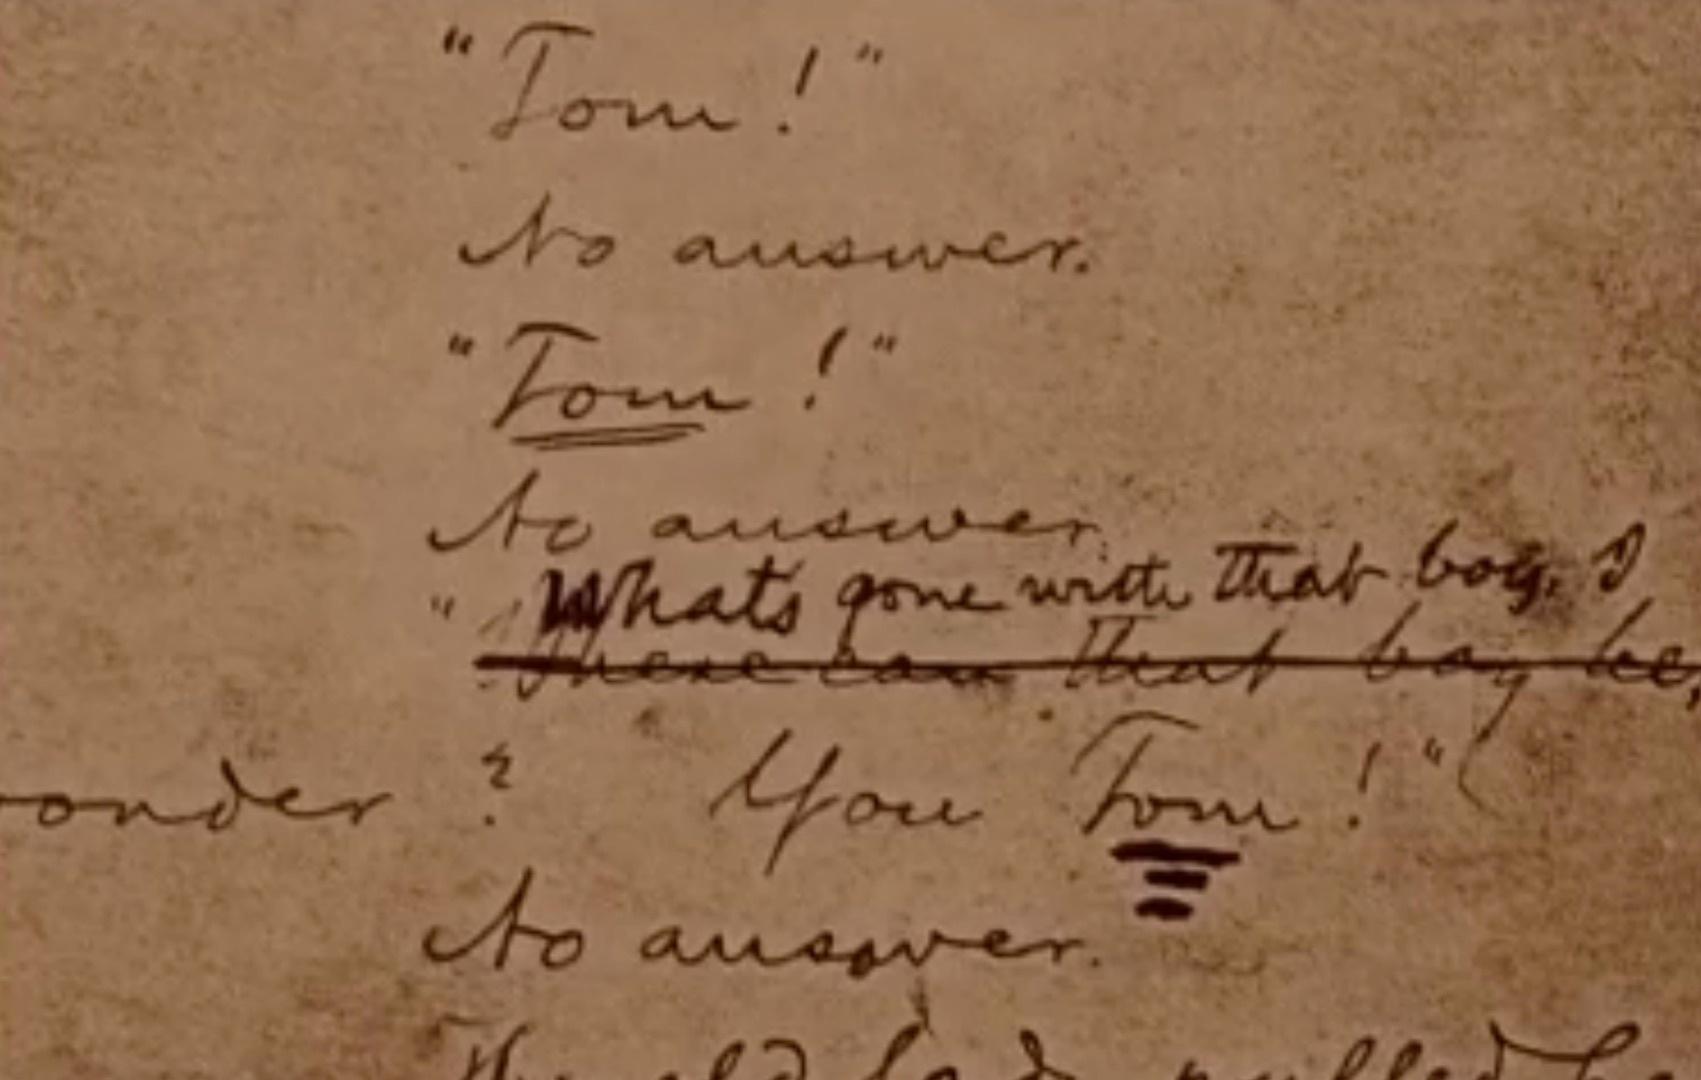 "Tom!"
No answer.
"Tom!"
No answer.
"Whats gone with that boy, I
Where can that boy be,
wonder? You Tom!"
No answer.
The old lady pulled he